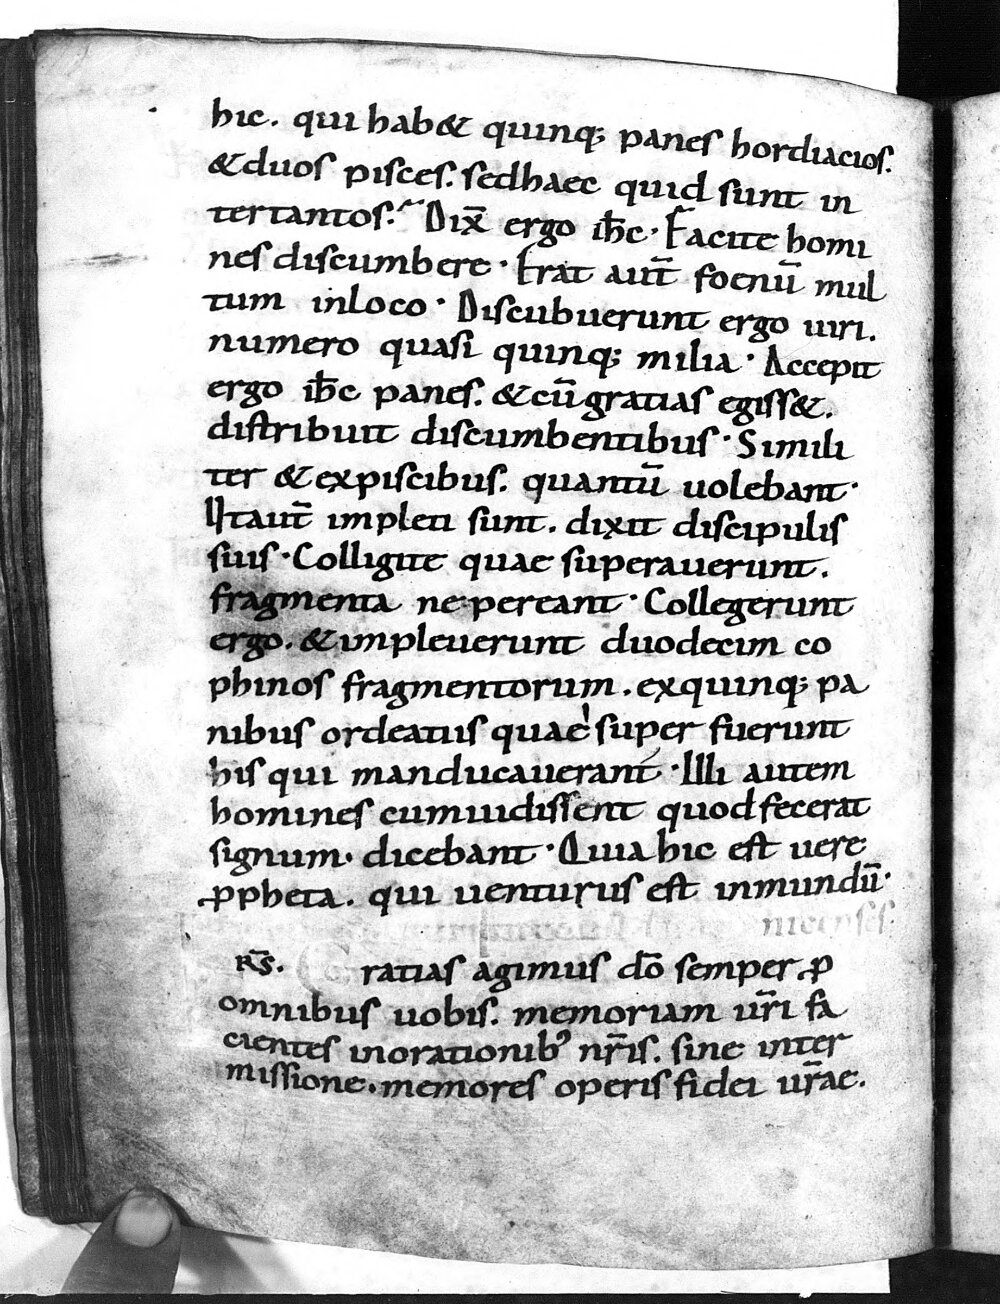 hic. qui hab& quinq; panes hordiacios.
&duos pisces. sedhaec quid sunt in
tertantos. Dix̄ ergo ih̄c. Facite homi
nes discumbere. Erat aut̄ foenū mul
tum inloco. Discubuerunt ergo uiri.
numero quasi quinq; milia. Accepit
ergo ih̄c panes. &cū gratias egiss&.
distribuit discumbentibus. Simili
ter &expiscibus. quantū uolebant.
Utaut̄ impleti sunt. dixit discipulis
suis. Colligite quae superauerunt.
fragmenta ne pereant. Collegerunt
ergo. &impleuerunt duodecim co
phinos fragmentorum. exquinq; pa
nibus ordeatiis quae super fuerunt
his qui manducauerant. Illi autem
homines cumuidissent quodfecerat
signum. dicebant. Quia hic est uere
ꝓpheta. qui uenturus est inmundū.
R̄S. ratias agimus dō semper ꝓ
omnibus uobis. memoriam ur̄i fa
cientes inorationib; nr̄is. sine inter
missione. memores operis fidei ur̄ae.